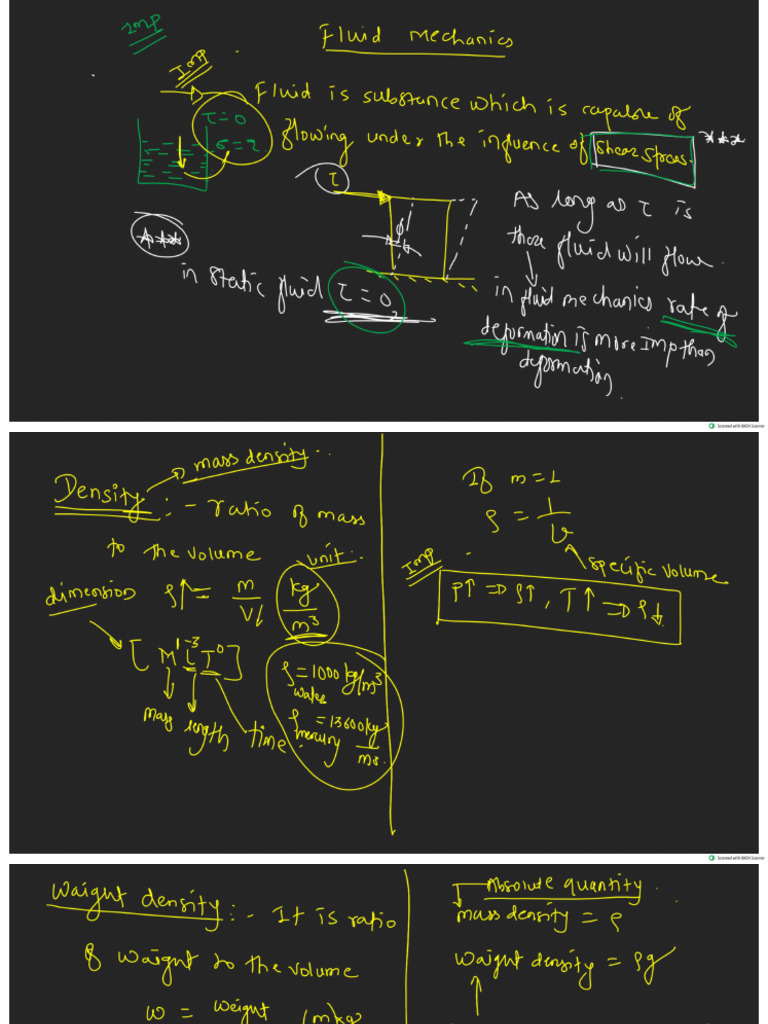 Imp
Fluid Mechanics
Imp
Fluid is substance which is capable of
flowing under the influence of shear stress.
τ=0
τ
As long as τ is
those fluid will flow.
in static fluid τ=0
in fluid mechanics rate of
deformation is more imp than
deformation.
Scanned with OKEN Scanner
mass density
Density :- ratio of mass
to the volume
unit
dimension ρ↑ = m/V↓ kg/m³
[M¹ L⁻³ T⁰]
mass length time
ρ = 1000 kg/m³
water
ρ = 13600 kg/m³
mercury
If m=1
ρ = 1/v
specific volume
Imp
P↑ ⇒ ρ↑, T↑ ⇒ ρ↓
Scanned with OKEN Scanner
Waight density :- It is ratio
of waight to the volume
w = weight
Absolute quantity
mass density = ρ
waight density = ρg